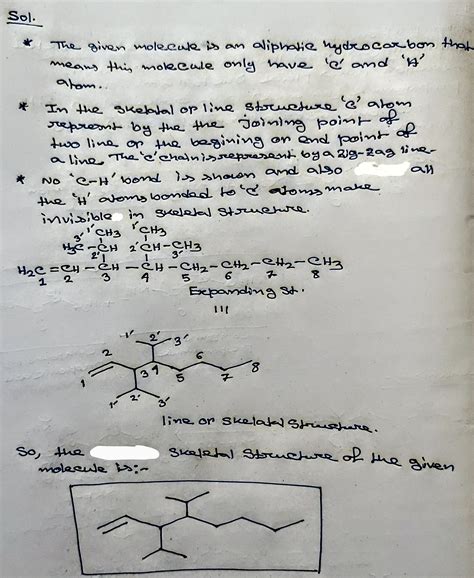 Sol.
* The given molecule is an aliphatic hydrocarbon that
means this molecule only have 'C' and 'H'
atom.
* In the skeletal or line structure 'C' atom
represent by the the joining point of
two line or the begining or end point of
a line. The 'C' chain is represent by a zig-zag line.
* No 'C-H' bond is shown and also all
the 'H' atoms bonded to 'C' atoms make
invisible in skeletal structure.
3' 1' CH3 1' CH3
H3C-CH 2' CH-CH3
2' 3'
H2C=CH-CH-CH-CH2-CH2-CH2-CH3
1 2 3 4 5 6 7 8
Expanding st.
1' 2' 3'
2 6
1 3 4 5 7 8
1' 2' 3'
line or skeletal structure.
So, the skeletal structure of the given
molecule is:-